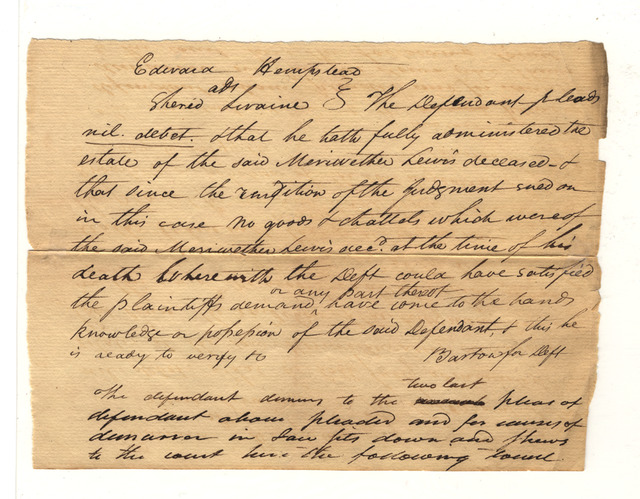 Edward Hempstead
ads
Shered Swaine } The Defendant pleads
nil. debet. & that he hath fully administered the
estate of the said Meriwether Lewis deceased - &
that since the rendition of the Judgment sued on
in this case no goods & chattels which were of
the said Meriwether Lewis decd. at the time of his
death wherewith the Deft could have satisfied
or any part thereof
the plaintiffs demand ^ have come to the hands
knowledge or possession of the said Defendant, & this he
is ready to verify &c Barton for Deft
two last
The defendant demurs to the pleas of
defendant above pleaded and for causes of
demurrer in Law sets down and shews
to the court here the following